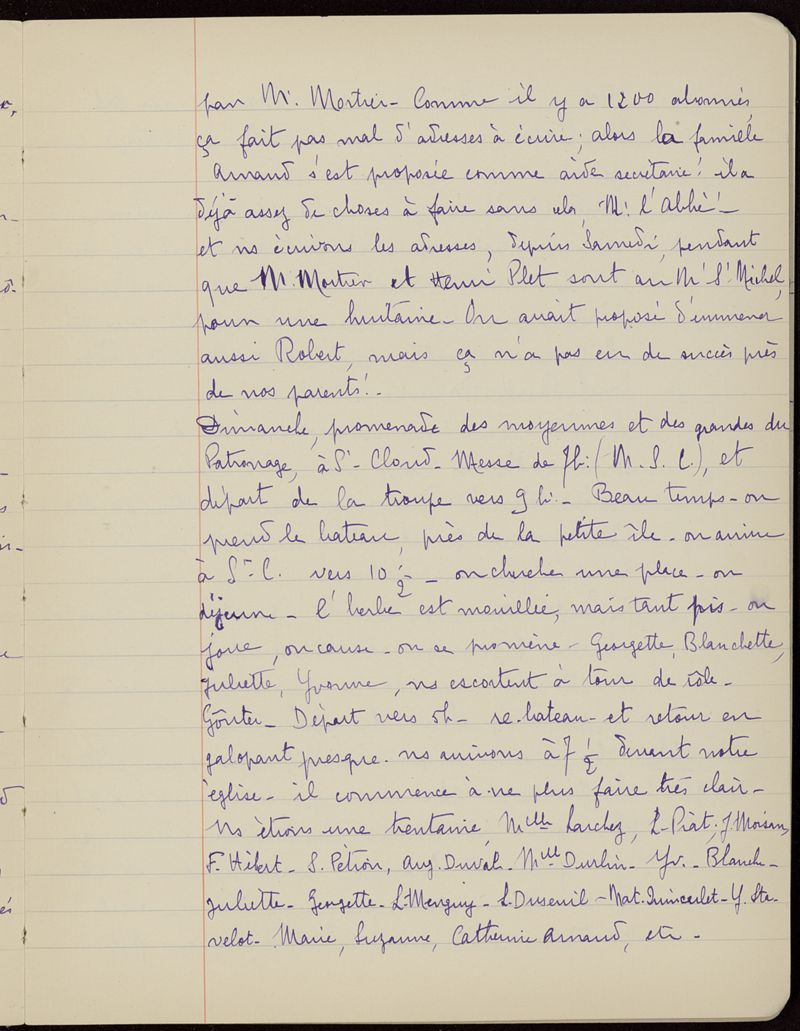 par Mr. Mortier - Comme il y a 1200 abonnés,
ça fait pas mal d'adresses à écrire ; alors la famille
Arnaud s'est proposée comme aide secrétaire ! il a
déjà assez de choses à faire sans cela, Mr. l'Abbé ! -
et ns écrivons les adresses, depuis Samedi, pendant
que Mr. Mortier et Henri Plet sont au Mt St Michel,
pour une huitaine - On avait proposé d'emmener
aussi Robert, mais ça n'a pas eu de succès près
de nos parents ! -
Dimanche, promenade des moyennes et des grandes du
Patronage, à St-Cloud - Messe de 7h: (M. S. C.), et
départ de la troupe vers 9 h. - Beau temps - on
prend le bateau, près de la petite île - on arrive
à St-C. vers 10 1/2 - on cherche une place - on
déjeune - l'herbe est mouillée, mais tant pis - on
joue, on cause - on se promène - Georgette, Blanchette,
Juliette, Yvonne, ns escortent à tour de rôle -
Goûter - Départ vers 5h - re-bateau - et retour en
galopant presque - ns arrivons à 7 1/2 devant notre
église - il commence à ne plus faire très clair -
Ns étions une trentaine, Melle Larchez, L. Piat, J. Moisan,
F. Hébert - S. Pétron, Aug. Duval - Melle Durbin - Yv. - Blanche -
Juliette - Georgette - L. Menguy - L. Duseuil - Mat. Quincarlet - Y. Sta-
velot - Marie, Suzanne, Catherine Arnaud, etc -